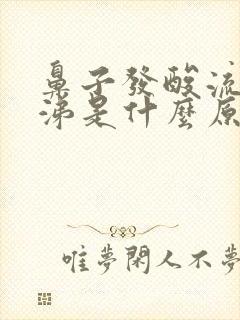 鼻子發酸流
涕是什麼原
唯夢閑人不夢